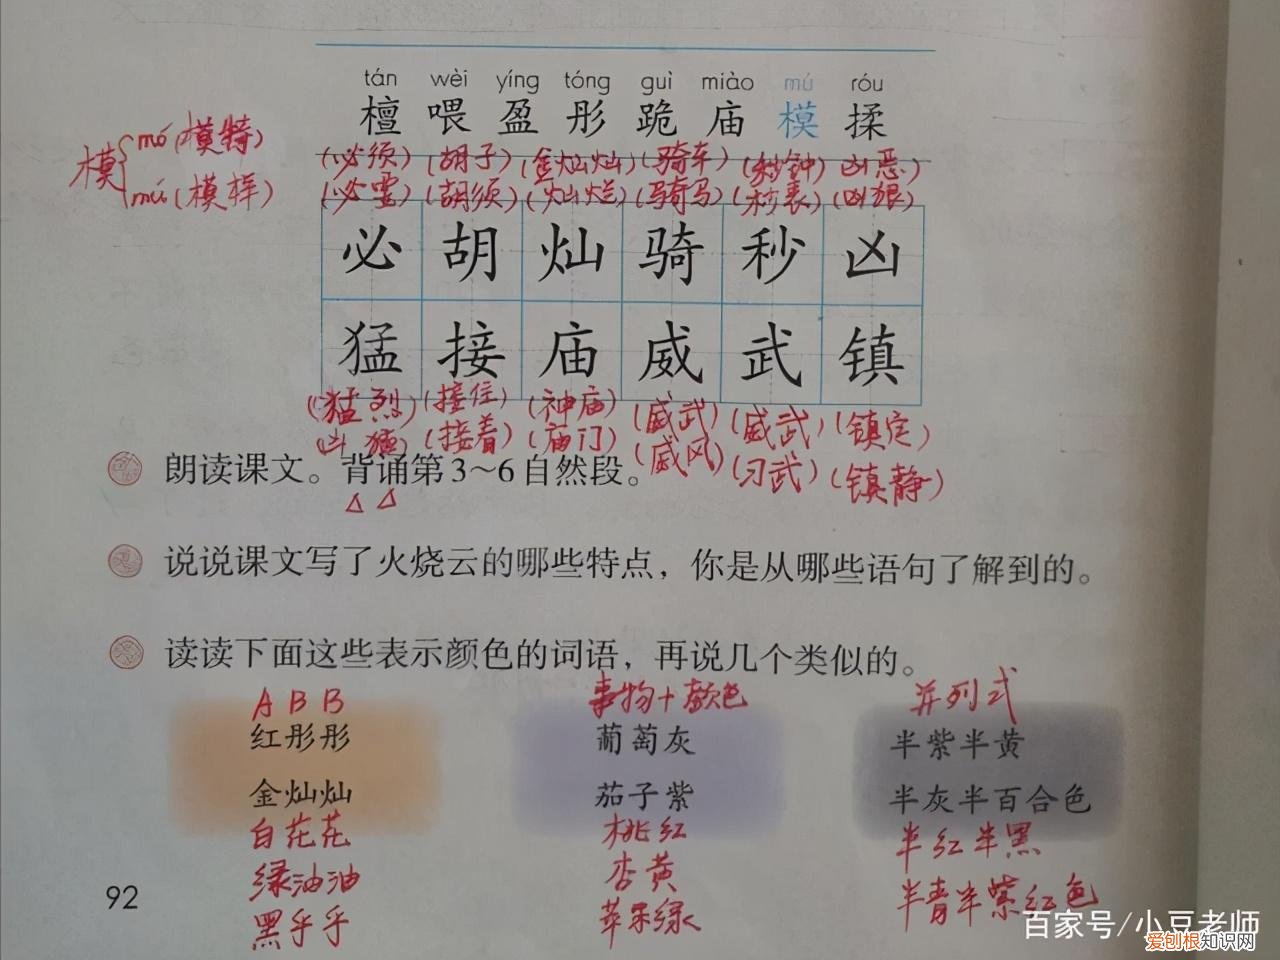 tán wèi yíng tóng guì miào mú róu
檀 喂 盈 彤 跪 庙 模 揉
模 mó(模特)
mú(模样)
(必须) (胡子) (金灿灿) (骑车) (秒钟) 凶恶)
(必需) (胡须) (灿烂) (骑马) (秒表) (凶狠)
必 胡 灿 骑 秒 凶
猛 接 庙 威 武 镇
(猛烈) (接住) (神庙) (威武) (威武) (镇定)
凶猛 (接着) (庙门) (威风) (习武) (镇静)
朗读课文。背诵第3~6自然段。
说说课文写了火烧云的哪些特点，你是从哪些语句了解到的。
读读下面这些表示颜色的词语，再说几个类似的。
ABB 事物+颜色 并列式
红彤彤 葡萄灰 半紫半黄
金灿灿 茄子紫 半灰半百合色
白花花 桃红 半红半黑
绿油油 杏黄 半青半紫红色
黑乎乎 苹果绿
92
百家号/小豆老师
爱刨根知识网